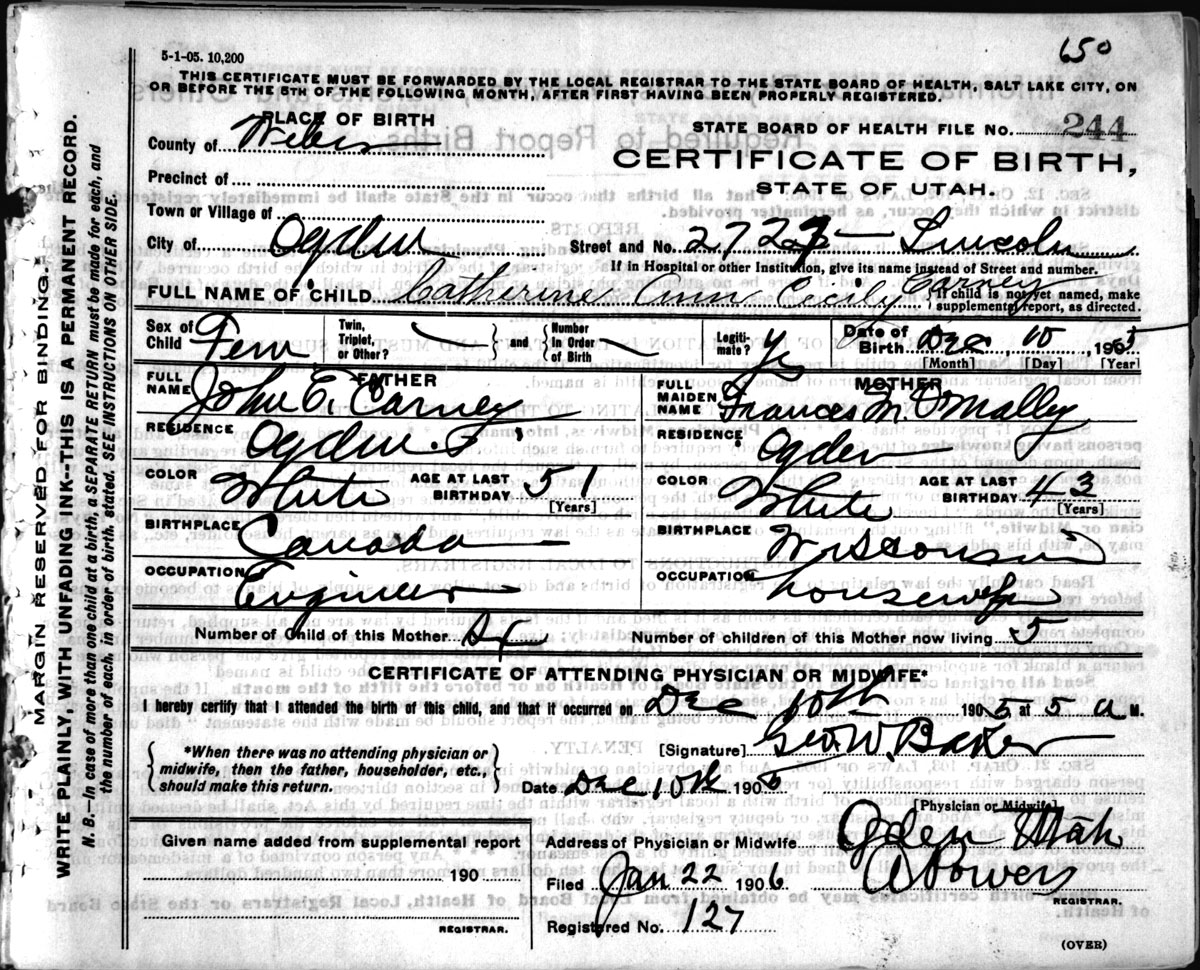 650
5-1-05. 10,200
THIS CERTIFICATE MUST BE FORWARDED BY THE LOCAL REGISTRAR TO THE STATE BOARD OF HEALTH, SALT LAKE CITY, ON
OR BEFORE THE 5TH OF THE FOLLOWING MONTH, AFTER FIRST HAVING BEEN PROPERLY REGISTERED.
PLACE OF BIRTH
County of Weber
Precinct of
Town or Village of
City of Ogden
STATE BOARD OF HEALTH FILE No. 244
CERTIFICATE OF BIRTH,
STATE OF UTAH.
Street and No. Lincoln
If in Hospital or other Institution, give its name instead of Street and number.
FULL NAME OF CHILD Catherine Ann Cecily Carney
If child is not yet named, make
supplemental report, as directed.
Sex of Child Fem
Twin, Triplet, or Other?
and
Number In Order of Birth
Legitimate? Yes
Date of Birth Dec 10, 1905
[Month] [Day] [Year]
FATHER
FULL NAME John E. Carney
RESIDENCE Ogden
COLOR White AGE AT LAST BIRTHDAY 51
[Years]
BIRTHPLACE Canada
OCCUPATION Engineer
MOTHER
FULL MAIDEN NAME Frances M. O'Malley
RESIDENCE Ogden
COLOR White AGE AT LAST BIRTHDAY 43
[Years]
BIRTHPLACE Wisconsin
OCCUPATION Housewife
Number of Child of this Mother Six
Number of children of this Mother now living 5
CERTIFICATE OF ATTENDING PHYSICIAN OR MIDWIFE*
I hereby certify that I attended the birth of this child, and that it occurred on Dec 10th 1905 at 5 a M.
*When there was no attending physician or
midwife, then the father, householder, etc.,
should make this return.
[Signature] Geo. W. Baker
Date Dec 10th 1905
[Physician or Midwife]
Given name added from supplemental report
190
REGISTRAR.
Address of Physician or Midwife Ogden Utah
Filed Jan 22 1906
A Powers
REGISTRAR.
Registered No. 127
(OVER)
MARGIN RESERVED FOR BINDING.
WRITE PLAINLY, WITH UNFADING INK--THIS IS A PERMANENT RECORD.
N. B.--In case of more than one child at a birth, a SEPARATE RETURN must be made for each, and
the number of each, in order of birth, stated. SEE INSTRUCTIONS ON OTHER SIDE.